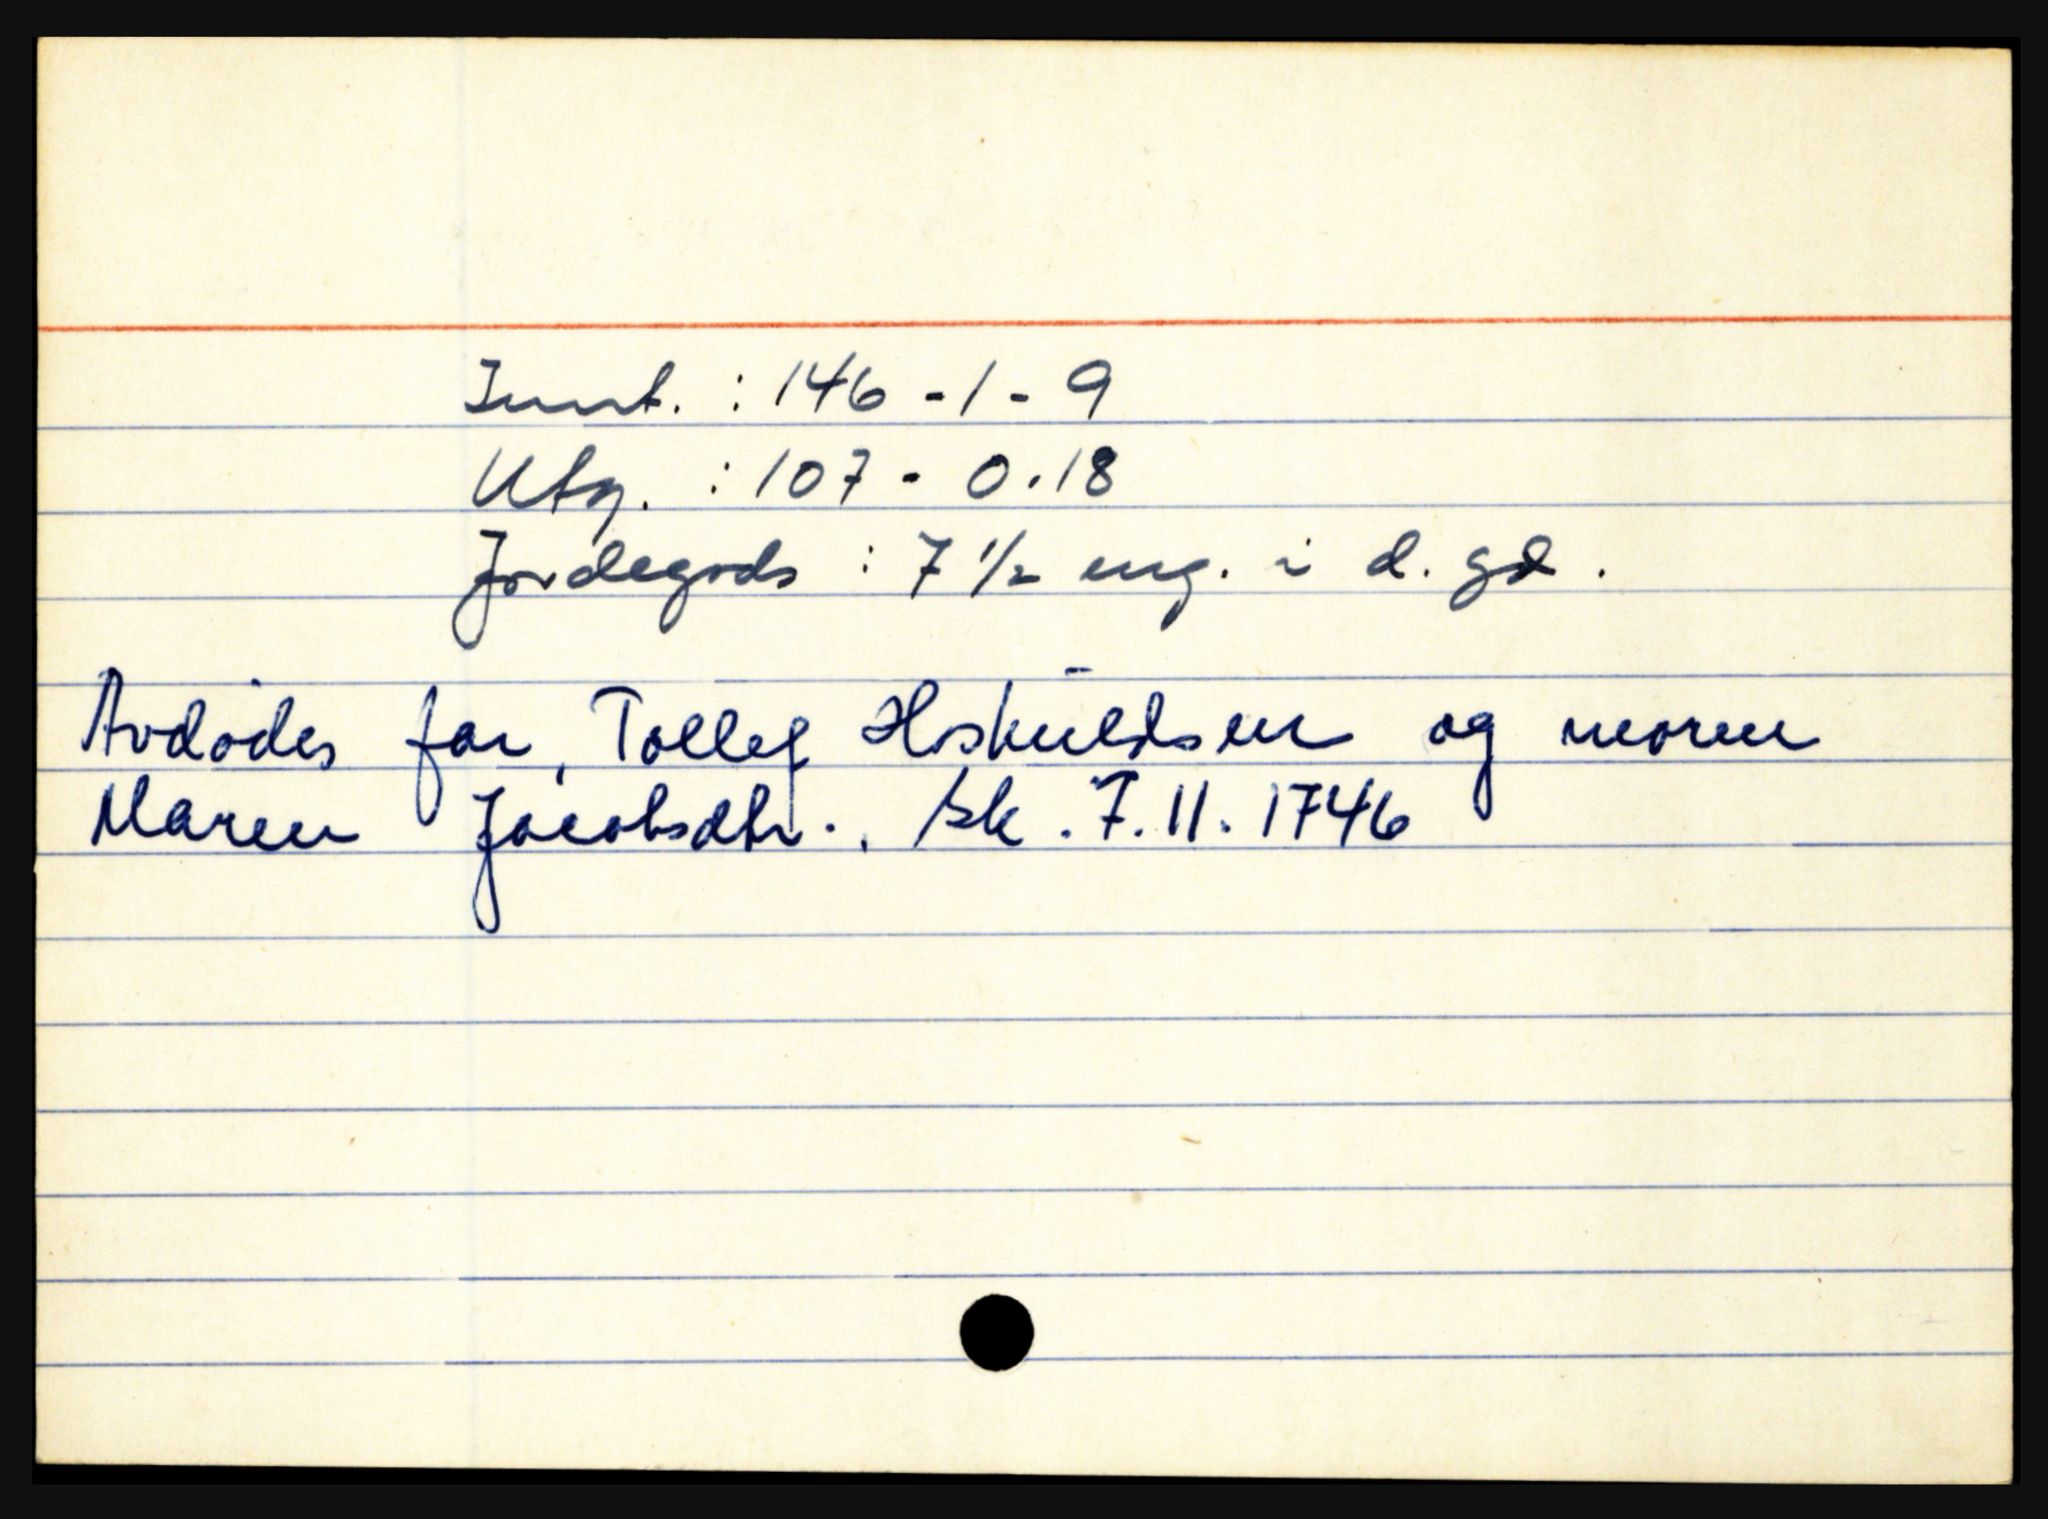 Innt. : 146 - 1 - 9
Utg. : 107 - 0 . 18
Jordegods : 7 1/2 eng. i d. gd .
Avdødes far, Tollef Hoskuldsen og moren
Maren Jacobsdtr. , sk . 7. 11. 1746